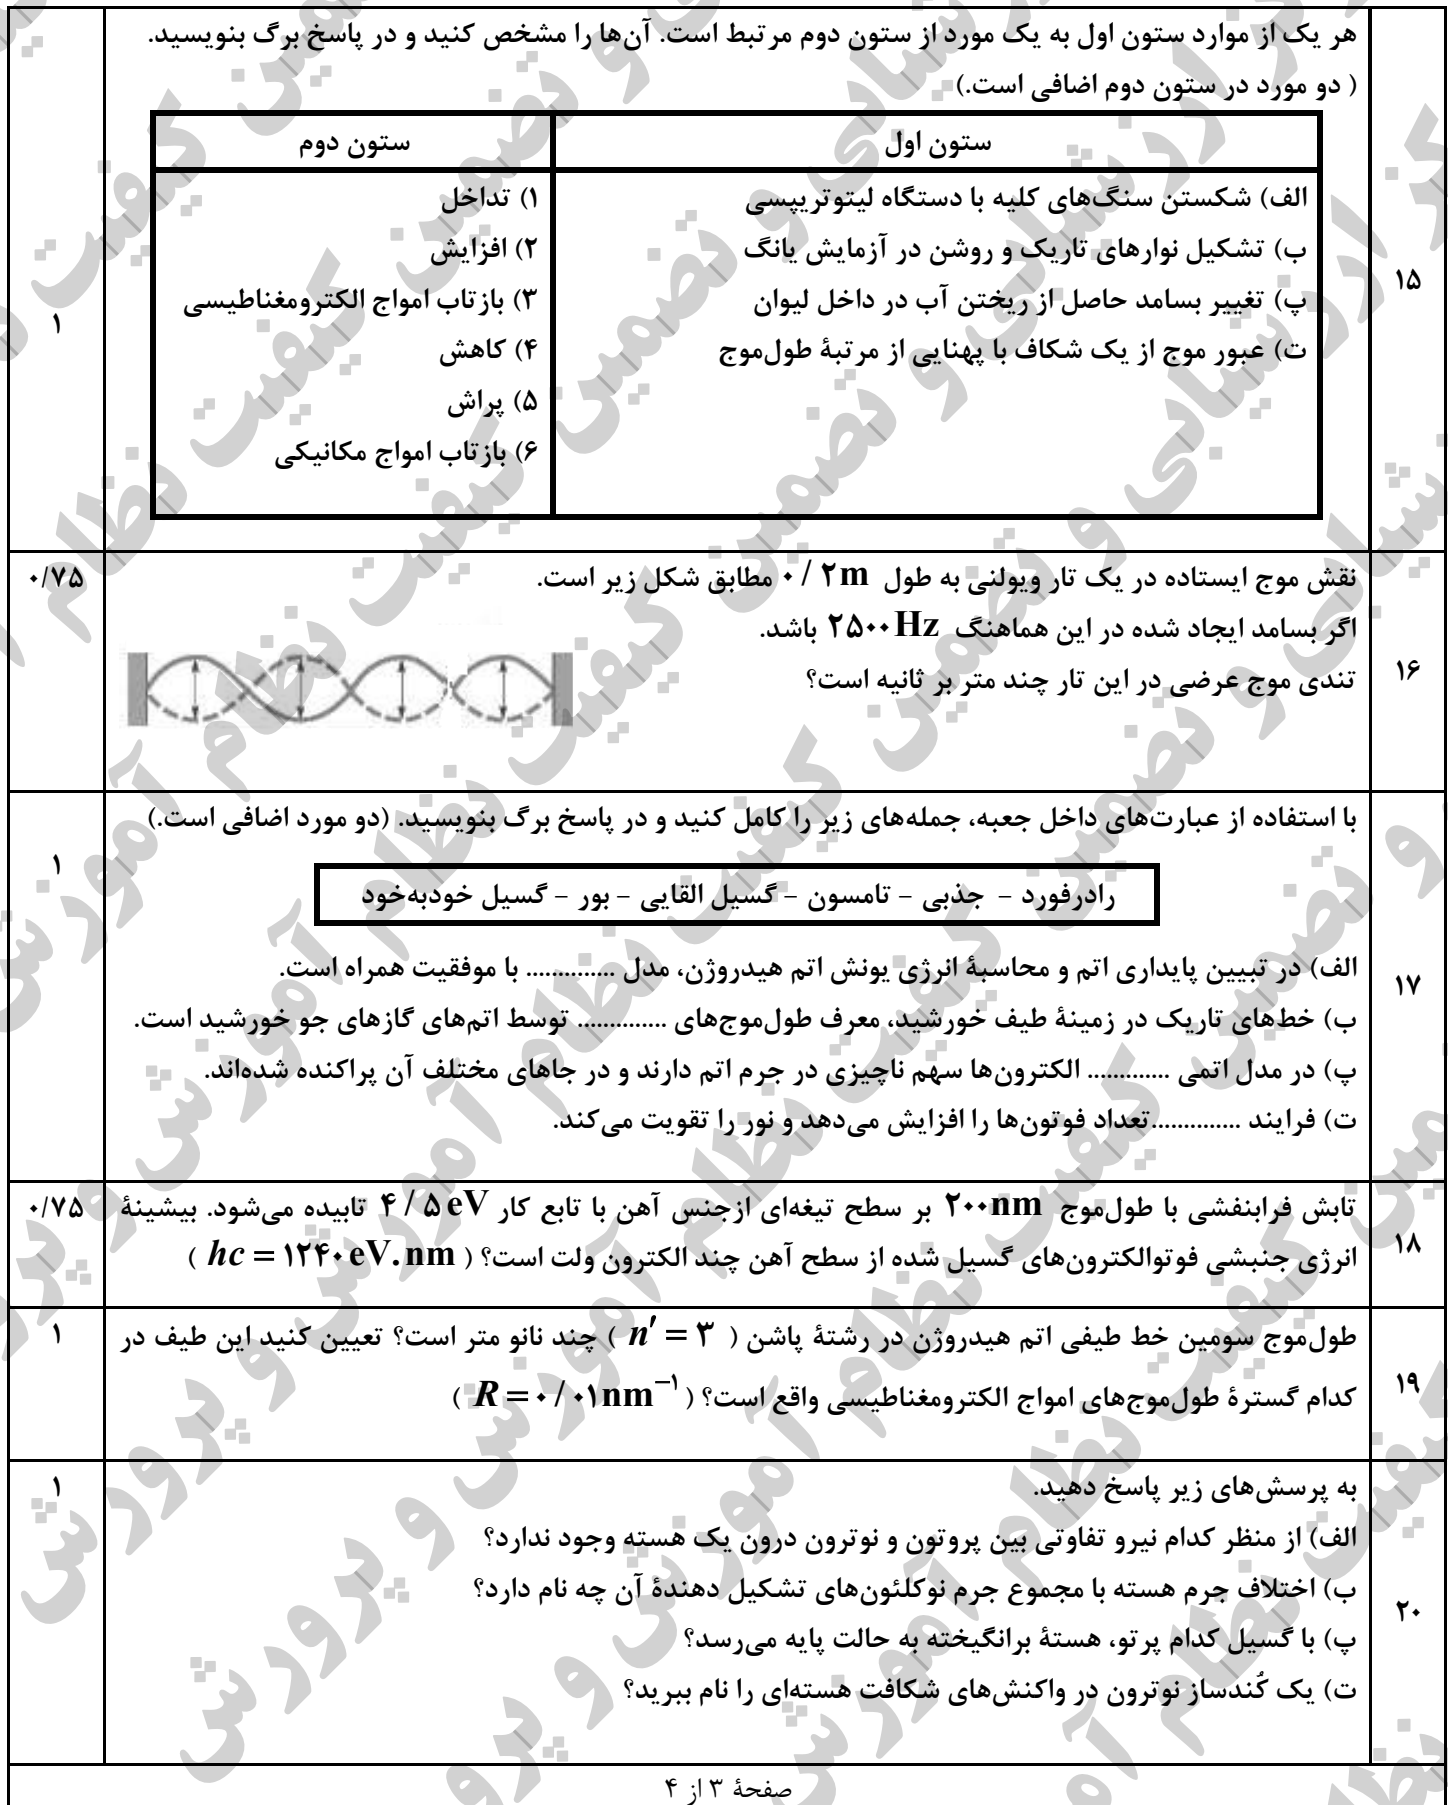 هر یک از موارد ستون اول به یک مورد از ستون دوم مرتبط است. آن‌ها را مشخص کنید و در پاسخ برگ بنویسید.
( دو مورد در ستون دوم اضافی است.)
ستون اول
ستون دوم
الف) شکستن سنگ‌های کلیه با دستگاه لیتوتریپسی
ب) تشکیل نوارهای تاریک و روشن در آزمایش یانگ
پ) تغییر بسامد حاصل از ریختن آب در داخل لیوان
ت) عبور موج از یک شکاف با پهنایی از مرتبهٔ طول‌موج
۱) تداخل
۲) افزایش
۳) بازتاب امواج الکترومغناطیسی
۴) کاهش
۵) پراش
۶) بازتاب امواج مکانیکی
۱۵
۱
نقش موج ایستاده در یک تار ویولنی به طول ۰/۲m مطابق شکل زیر است.
اگر بسامد ایجاد شده در این هماهنگ ۲۵۰۰Hz باشد.
تندی موج عرضی در این تار چند متر بر ثانیه است؟
۱۶
۰/۷۵
با استفاده از عبارت‌های داخل جعبه، جمله‌های زیر را کامل کنید و در پاسخ برگ بنویسید. (دو مورد اضافی است.)
رادرفورد - جذبی - تامسون - گسیل القایی - بور - گسیل خودبه‌خود
الف) در تبیین پایداری اتم و محاسبهٔ انرژی یونش اتم هیدروژن، مدل .............. با موفقیت همراه است.
ب) خط‌های تاریک در زمینهٔ طیف خورشید، معرف طول‌موج‌های .............. توسط اتم‌های گازهای جو خورشید است.
پ) در مدل اتمی ............. الکترون‌ها سهم ناچیزی در جرم اتم دارند و در جاهای مختلف آن پراکنده شده‌اند.
ت) فرایند ..............تعداد فوتون‌ها را افزایش می‌دهد و نور را تقویت می‌کند.
۱۷
۱
تابش فرابنفشی با طول‌موج ۲۰۰nm بر سطح تیغه‌ای ازجنس آهن با تابع کار ۴/۵eV تابیده می‌شود. بیشینهٔ
انرژی جنبشی فوتوالکترون‌های گسیل شده از سطح آهن چند الکترون ولت است؟ ( hc = ۱۲۴۰eV.nm )
۱۸
۰/۷۵
طول‌موج سومین خط طیفی اتم هیدروژن در رشتهٔ پاشن ( n′ = ۳ ) چند نانو متر است؟ تعیین کنید این طیف در
کدام گسترهٔ طول‌موج‌های امواج الکترومغناطیسی واقع است؟ ( R = ۰/۰۱nm⁻¹ )
۱۹
۱
به پرسش‌های زیر پاسخ دهید.
الف) از منظر کدام نیرو تفاوتی بین پروتون و نوترون درون یک هسته وجود ندارد؟
ب) اختلاف جرم هسته با مجموع جرم نوکلئون‌های تشکیل دهندهٔ آن چه نام دارد؟
پ) با گسیل کدام پرتو، هستهٔ برانگیخته به حالت پایه می‌رسد؟
ت) یک کُندساز نوترون در واکنش‌های شکافت هسته‌ای را نام ببرید؟
۲۰
۱
صفحهٔ ۳ از ۴